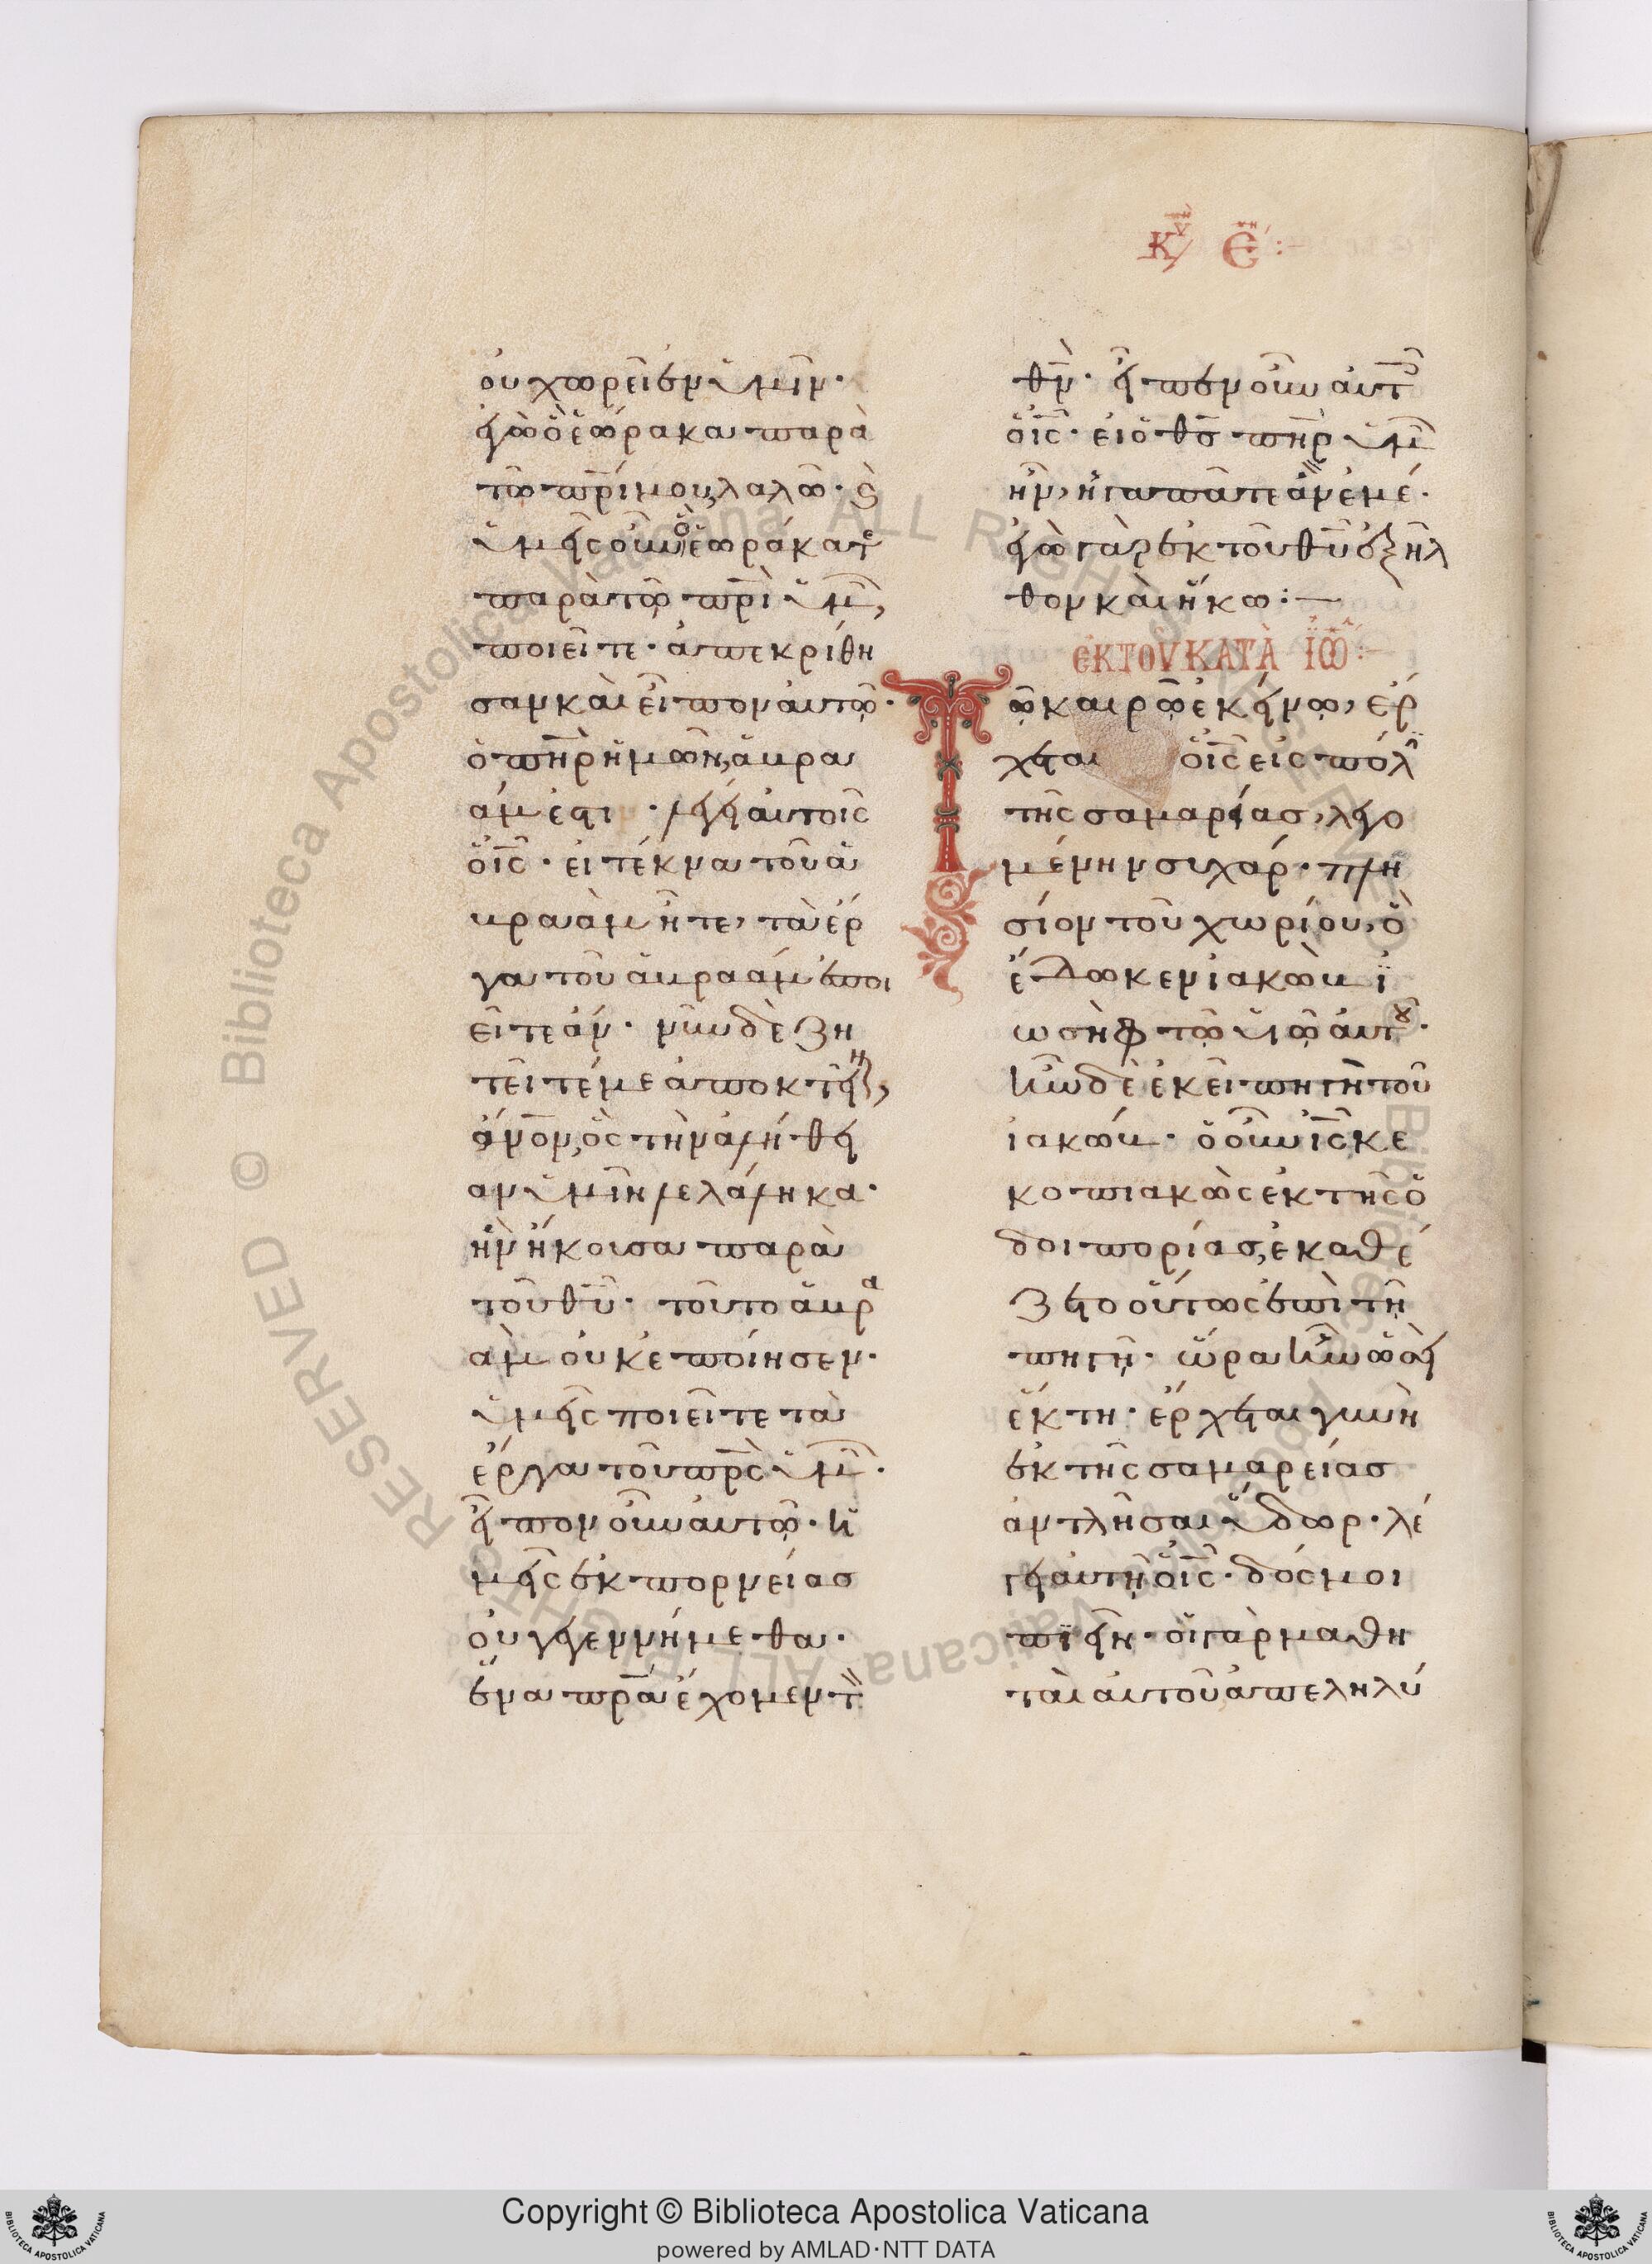 κυ ε :-
οὐ χωρεῖ ἐν ὑμῖν·
ἐγὼ ὃ ἑώρακα παρὰ
τῶ πρί μου, λαλῶ· καὶ
ὑμεῖς οὖν ὃ ἑωράκατε
παρὰ τῷ πρὶ ὑμῶ,
ποιεῖτε· ἀπεκρίθη
σαν καὶ εἶπον αὐτῷ·
ὁ πηρ ἡμῶν, ἁβρα
άμ ἐστι· λέγει αὐτοῖς
ὁ ις· εἰ τέκνα τοῦ ἁ
βραὰμ ἦτε, τὰ ἔρ
γα τοῦ ἁβραὰμ ἐποι
εῖτε ἄν· νῦν δὲ ζη
τεῖτέ με ἀποκτεῖν,
ἄνον, ὃς τὴν ἀλήθει
αν ὑμῖν λελάληκα·
ἣν ἤκουσα παρὰ
τοῦ θυ· τοῦτο ἁβρα
ὰμ οὐκ ἐποίησεν·
ὑμεῖς ποιεῖτε τὰ
ἔργα τοῦ πρς ὑμῶ·
εἶπον οὖν αὐτῷ· ἡ
μεῖς ἐκ πορνείας
οὐ γεγεννήμεθα·
ἕνα πρα ἔχομεν τ
θν· εἶπεν οὖν αὐτ
ὁ ις· εἰ ὁ θς πηρ ὑμῶ
ἦν, ἠγαπᾶτε ἂν ἐμέ·
ἐγὼ γὰρ ἐκ τοῦ θυ ἐξῆλ
θον καὶ ἥκω:—
ΕΚ ΤΟΥ ΚΑΤΑ ΙΩ:-
Τῷ καιρῷ ἐκείνῳ, ἔρ
χεται ὁ ις εἰς πόλ
τῆς σαμαρείας, λεγο
μένην συχάρ· πλη
σίον τοῦ χωρίου, ὃ
ἔδωκεν ἰακὼβ ἰ
ωσὴφ τῷ υἱῷ αὐτου·
ἦν δὲ ἐκεῖ πηγὴ τοῦ
ἰακώβ· ὁ οὖν ις κε
κοπιακὼς ἐκ τῆς ὁ
δοιπορίας, ἐκαθέ
ζετο οὕτως ἐπὶ τῇ
πηγῇ· ὥρα ἦν ὡσεὶ
ἕκτη· ἔρχεται γυνὴ
ἐκ τῆς σαμαρείας
ἀντλῆσαι ὕδωρ· λέ
γει αὐτῇ ὁ ις· δός μοι
πιεῖν· οἱ γὰρ μαθη
ταὶ αὐτοῦ ἀπεληλύ
Copyright © Biblioteca Apostolica Vaticana
powered by AMLAD·NTT DATA